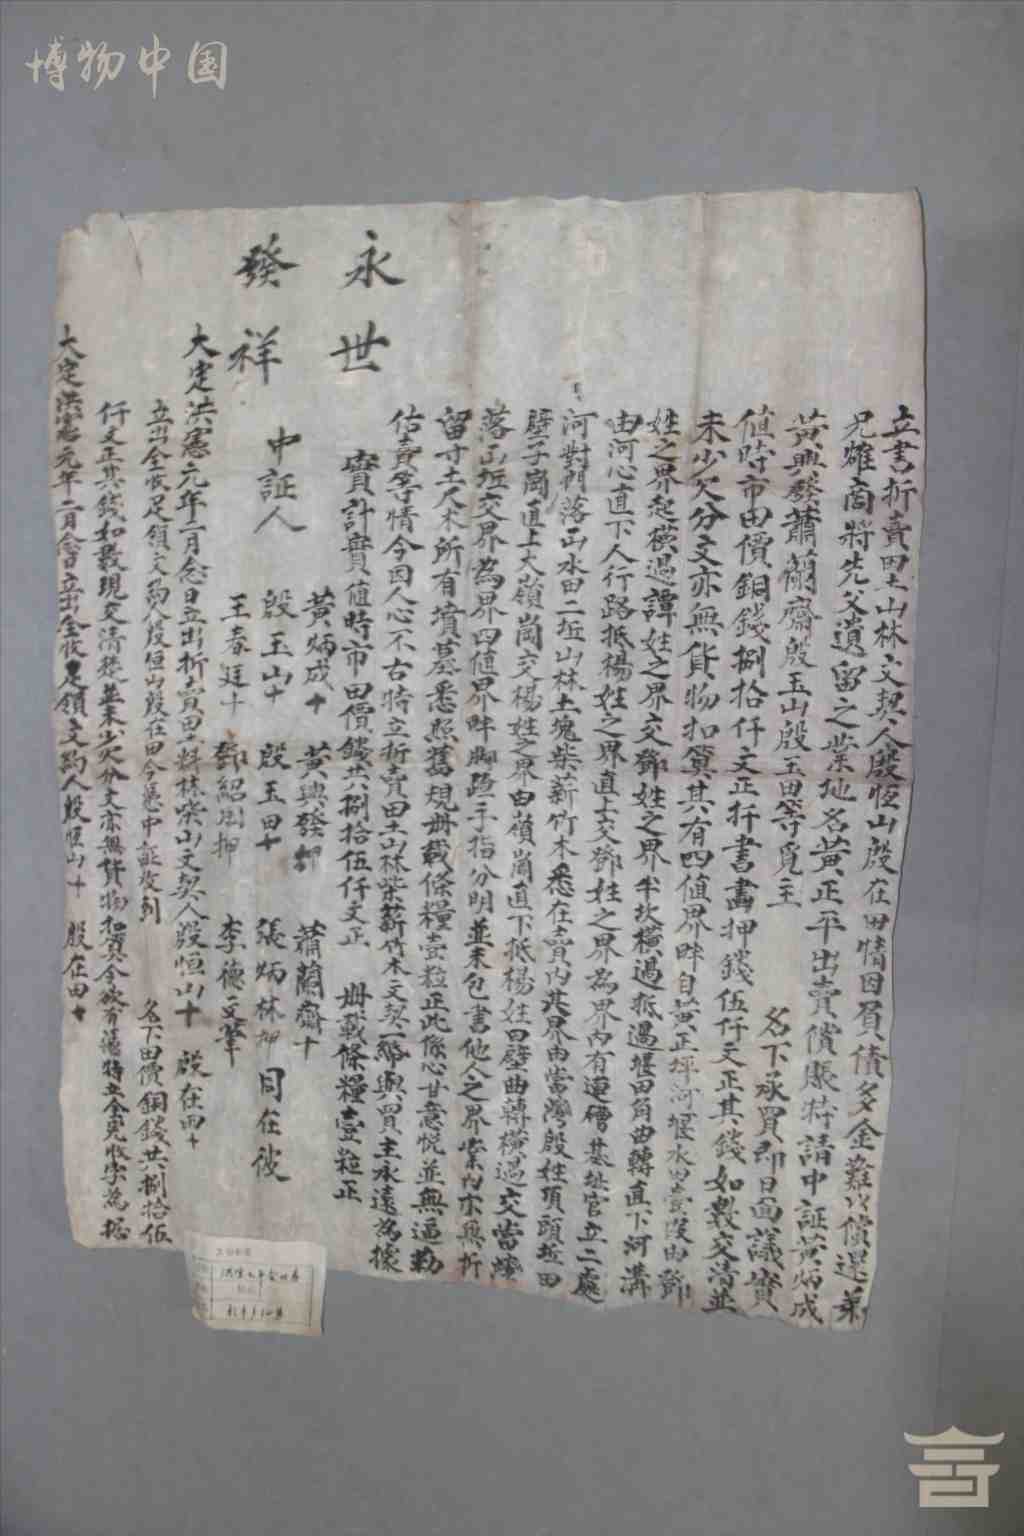 博物中国
立書折賣田土山林文契人殷恒山殷在田情因負債多金難以償還弟
兄雖商將先父遺留之業地名黃正平出賣償賬特請中証黃炳成
黃興發蕭蘭齋殷玉山殷玉田等覓主 名下承買即日面議實
值時市田價銅錢捌拾仟文正扦書畫押錢伍仟文正其錢如數交清並
未少欠分文亦無貨物扣算其有四值界畔自黃正坪河堰水田壹段由鄧
姓之界起橫過譚姓之界交鄧姓之界半坎橫過抵過堰田角曲轉直下河溝
由河心直下人行路抵楊姓之界直上交鄧姓之界為界內有連磳基址官立二處
河對門落凸水田二坵山林土塊柴薪竹木悉在賣內其界由當灣殷姓項頭坵田
壁子崗直上大嶺崗交楊姓之界由嶺崗直下抵楊姓田壁曲轉橫過交當
落凸坵交界為界四值界畔腳踏手指分明並未包書他人之界業內亦無折
留寸土尺木所有墳墓悉照舊規册載條糧壹粒正此係心甘意悅並無逼勒
估賣等情今因人心不古特立折賣田土山林柴薪竹木文契一紙與買主永遠為據
實計實值時市田價錢共捌拾伍仟文正 册載條糧壹粒正
永世
發祥
黃炳成十 黃興發押 蕭蘭齋十
中証人 殷玉山十 殷玉田十 張炳林押 同在彼
王春廷十 鄧紹 押 李德三筆
大定洪憲元年二月念日立出折賣田土 林柴山文契人殷恒山十 殷在田十
立出全收足領文約人殷恒山殷在田今憑中証收到 名下田價銅錢共捌拾伍
仟文正其錢如數現交清楚並未少欠分文亦無貨物扣算今欲有憑特立全完收字為據
大定洪憲元年二月念日立出全收足領文約人殷恒山十 殷在田十